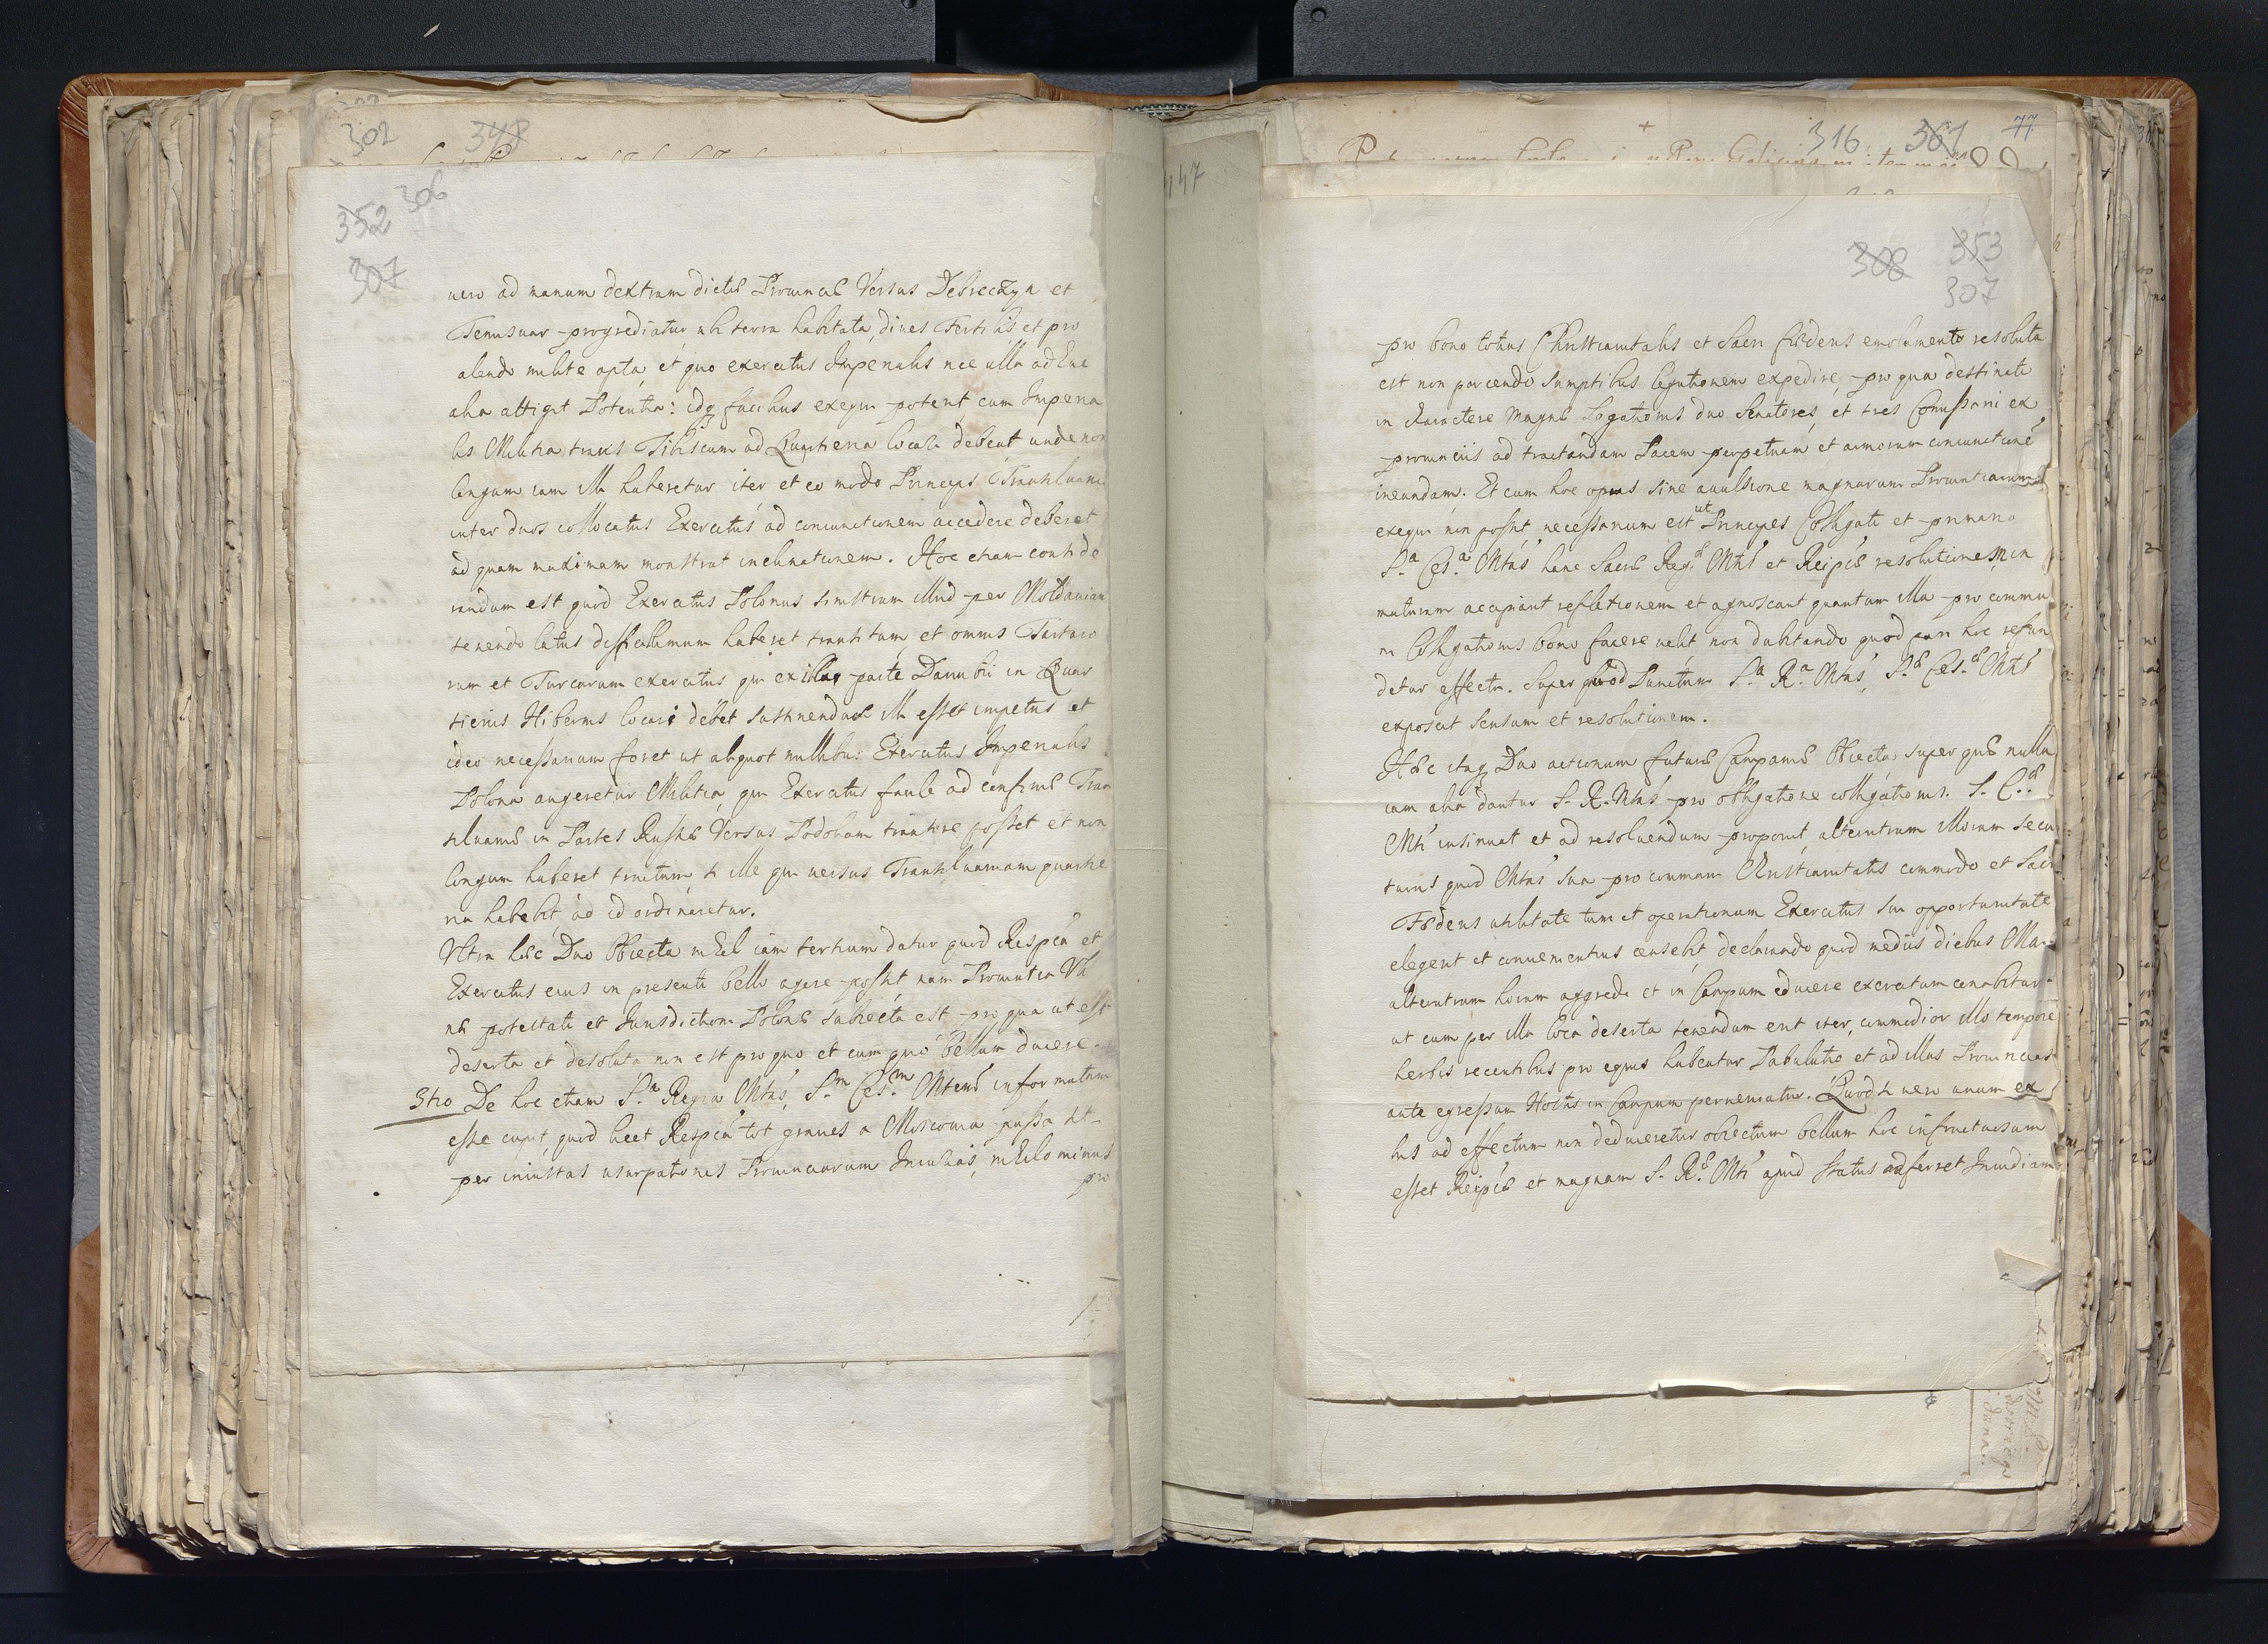 302 348
306
352
307
vero ad manum dextram dictæ Provinciæ Versus Debreczyn et
Temisuar progrediatur ubi terra habitata, dives fertilis et pro
alendo milite apta, et quo exercitus Imperialis nec ulla adhuc
alia attigit Potentia: idq facilius exequi poterit cum Imperia
lis Militia trans Tibiscum ad Quartiena locari debeat unde non
longum iam illa haberetur iter et eo modo Princeps Transilvaniæ
inter duos collocatus Exercitus ad coniunctionem accedere deberet
ad quam maximam monstrat inclinationem. Hoc etiam conside
randum est quod Exercitus Polonus sinistrum illud per Moldaviam
tenendo latus difficillimum haberet transitum et omnis Tartaro
rum et Turcarum exercitus qui ex illa parte Danubii in Quar
tieriis Hibernis locari debet sustinendus illi esset impetus et
ideo necessarium foret ut aliquot millibus Exercitus Imperialis
Polona augeretur Militia, qui Exercitus facile ad confinia Tran
silvaniæ in Partes Russiæ Versus Podoliam transire posset et non
longum haberet tractum si ille qui versus Transilvaniam quartie
ria habebit, ad id ordinaretur.
Ultra hæc Duo Obiecta nihil iam tertium datur quod Respca et
Exercitus eius in presenti bello agere possit nam Provintia Vk
næ potestati et Jurisdictioni Polonæ subiecta est, pro qua ut est
deserta et desoluta non est pro quo et cum quo bellum ducere.
5tio De hoc etiam S.a Regia Mtas, S.m Ces.m Mtem informatam
esse cupit, quod licet Respca tot graves a Moscovia passa sit
per iniustas usurpationes Provinciarum Iniurias, nihilo minus
pro
147
316 361 77
308 353
307
pro bono totius Christianitatis et Sacri foederis emolumento resoluta
est non parcendo sumptibus legationem expedire, pro qua destinati
in Karactere Magnæ Legationis duo Senatores, et tres Comissarii ex
provinciis ad tractandam Pacem perpetuam et armorum coniunctione
ineundam. Et cum hoc opus sine avulsione magnarum Provintiarum
exequi non possit necessarium est ut Principes Colligati et primario
S.a Ces.a Mtas hanc Sacræ Reg.æ Mtis et Reipcæ resolutionem in
maturam accipiant reflexionem et agnoscant quantum illa pro commu
ni Colligationis bono facere velit non dubitando quod pari hoc refun
detur effectu. Super quod Punctum S.a R.a Mtas, S.æ Ces.æ Mtis
exposcit sensum et resolutionem.
Hæc itaq Duo actionum futuræ Campaniæ Obiecta, super quæ nulla
iam alia dantur S. R. Mtas pro obligatione colligationis S. C.æ
Mti insinuat et ad resolvendum proponit, alterutrum illorum secu
turus quod Mtas sua pro communi Christianitatis commodo et Sacri
Foederis utilitate tum et operationum Exercitus sui opportunitate
elegerit et convenientius censebit, declarando quod mediis diebus Maii
alterutrum horum aggredi et in Campum educere exercitum conabitur
ut cum per illa loca deserta tenendum erit iter, commodior illo tempore
herbis recentibus pro equis habeatur Pabulatio et ad illas Provincias
ante egressum Hostis in Campum perveniatur. Quod si vero unum ex
his ad effectum non deduceretur obiectum bellum hoc infructuosum
esset Reipcæ et magnam S. R.æ Mti apud Status adferret Invidiam